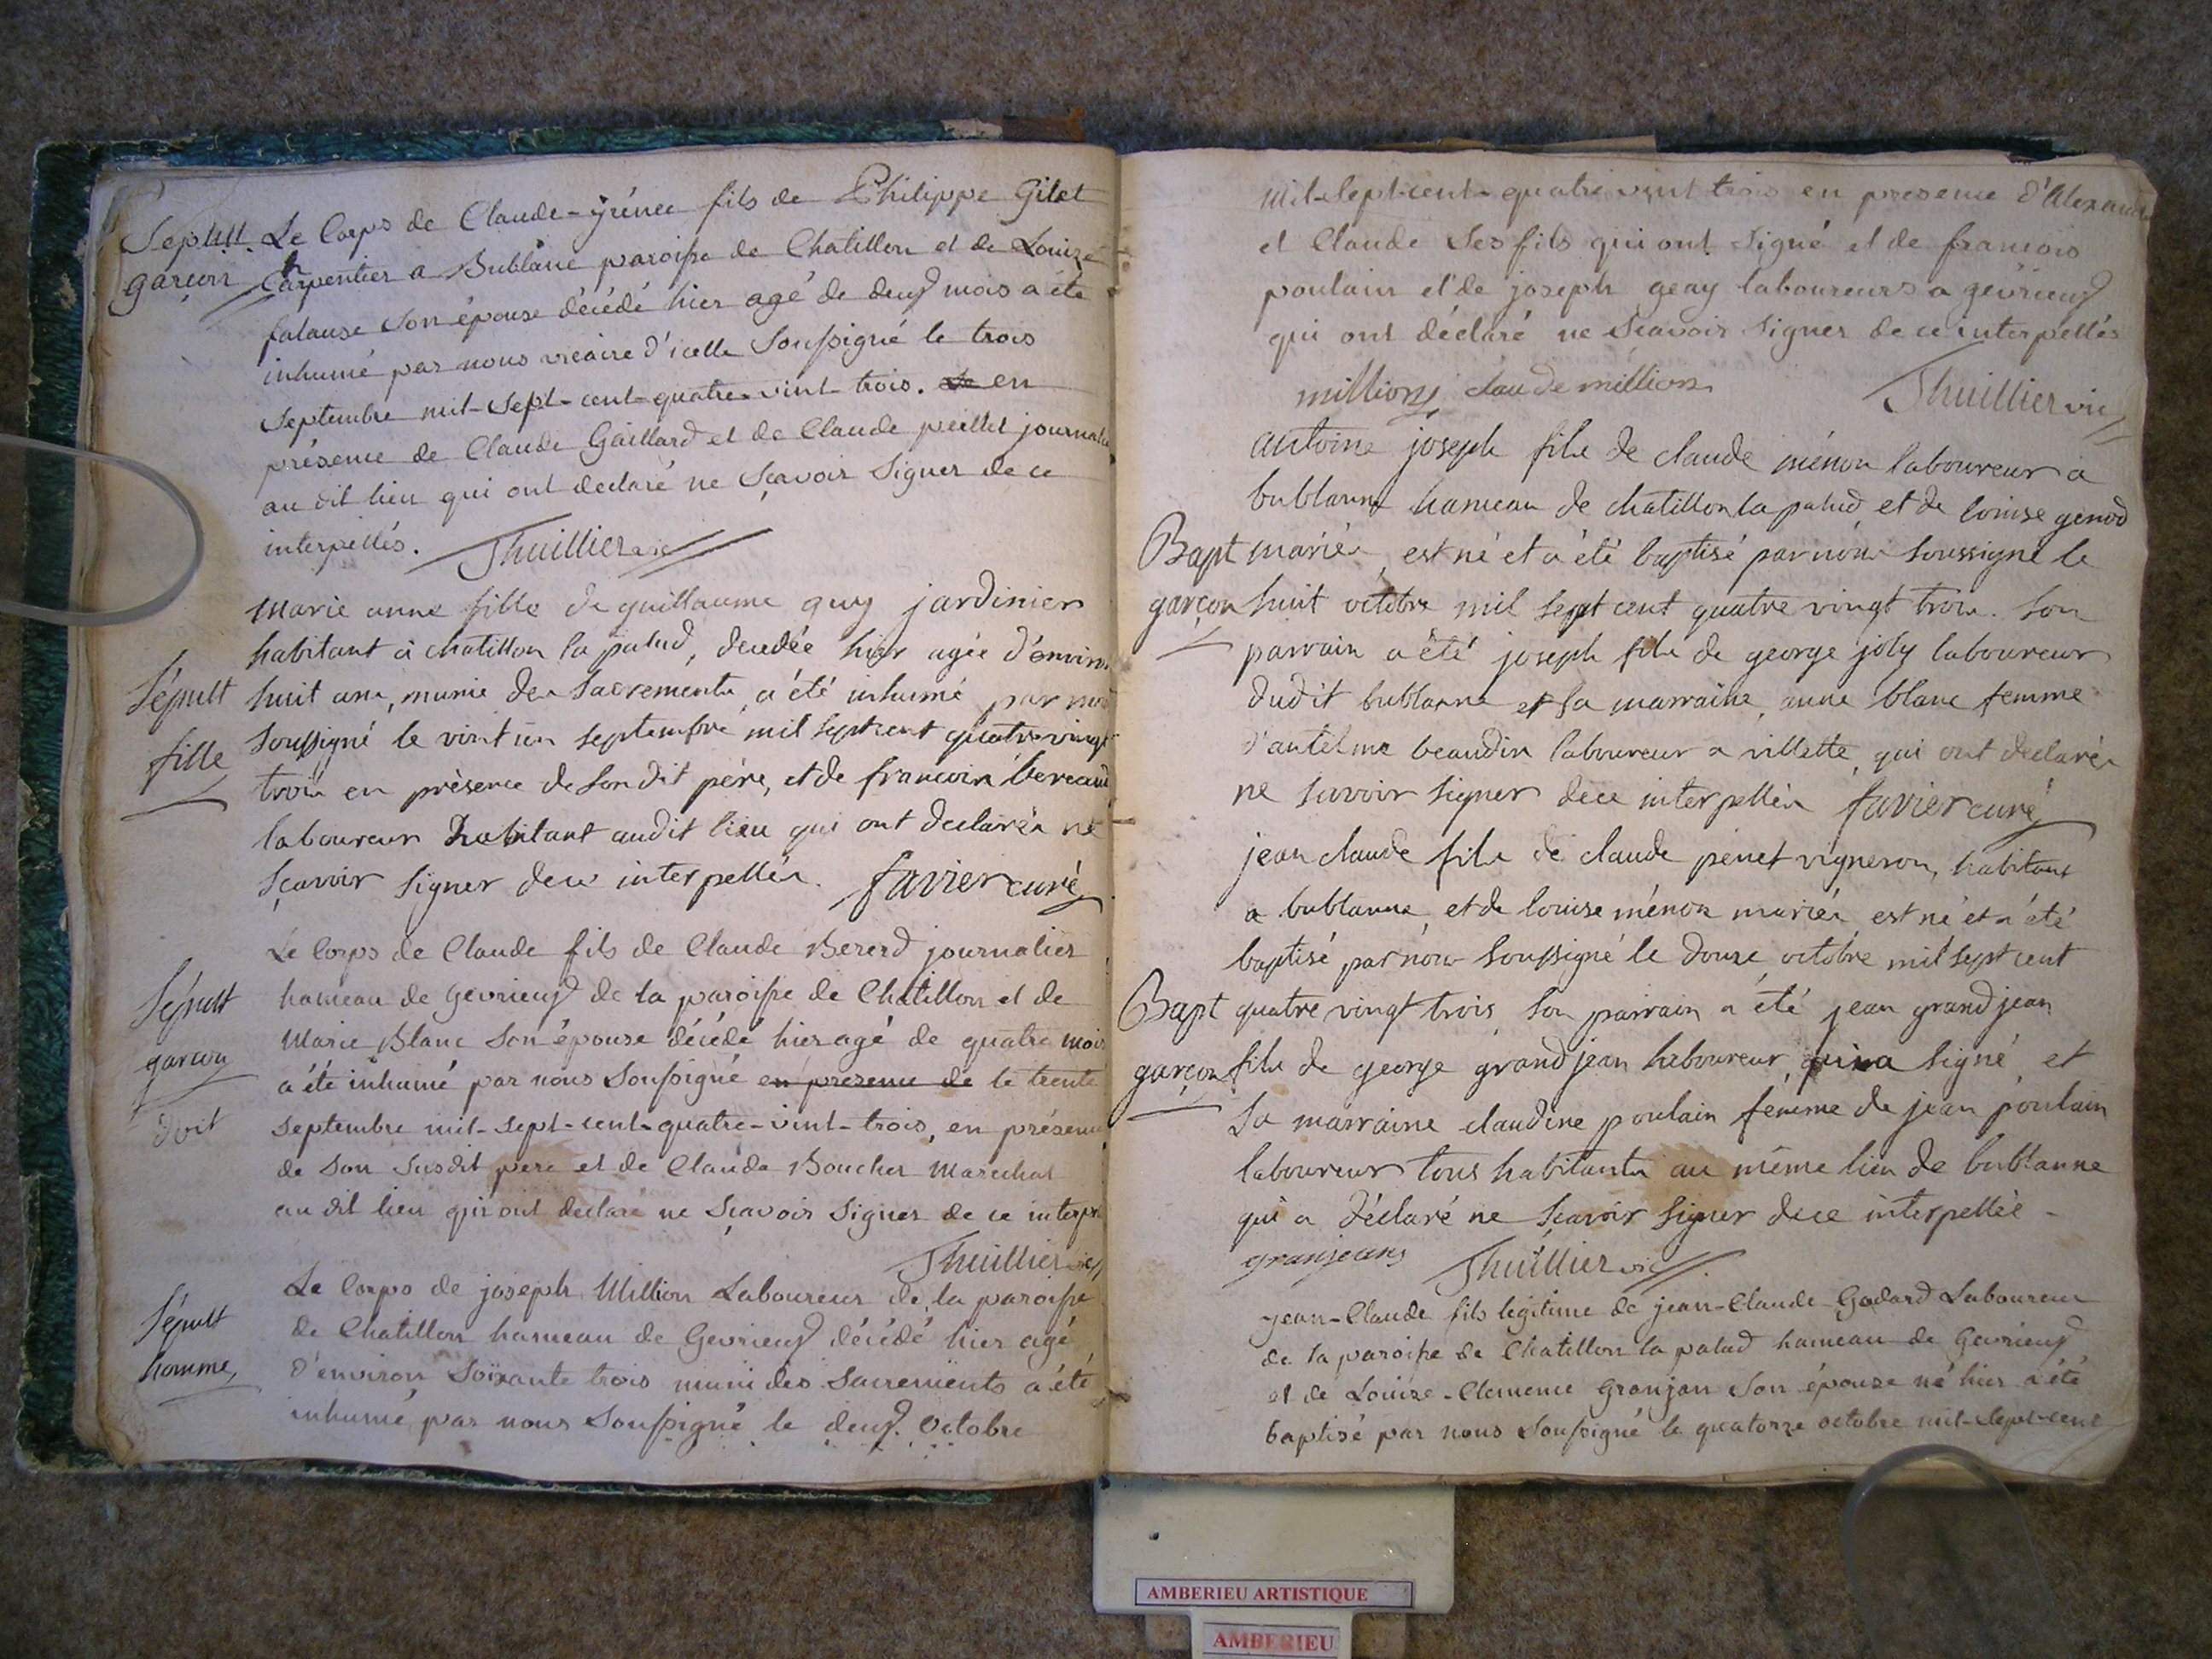 Sepult. Le Corps de Claude-yrénée fils de Philippe Gilet
garçon Carpentier a Bublane paroisse de Chatillon et de Louize
falause son épouse décédé hier agé de deux mois a été
inhumé par nous vicaire d'icelle Soussigné le trois
Septembre mil-sept-cent-quatre-vint-trois. en
présence de Claude Gaillard et de Claude peillet journalier
au dit lieu qui ont declaré ne Sçavoir Signer de ce
interpellés. Thuillier vic
marie anne fille de guillaume guy jardinier
habitant à chatillon la palud, decedée hier agée d'environ
Sépult huit ans, munie des sacrements, a été inhumé par nous
Soussigné le vint un septembre mil sept cent quatre vingt
fille trois en présence de son dit père, et de francois bereaud
laboureur habitant audit lieu qui ont declarés ne
sçavoir signer de ce interpellés. favier curé
Le Corps de Claude fils de Claude Bererd journalier
Sépult hameau de Gevrieux de la paroisse de Chatillon et de
Marie Blanc Son épouse décédé hier agé de quatre mois
garcon a été inhumé par nous Soussigné en presence de le trente
doit septembre mil-sept-cent-quatre-vint-trois, en présence
de Son Susdit pere et de Claude Boucher Marechal
au dit lieu qui ont declaré ne Sçavoir Signer de ce interpe
Thuillier vic
Le Corps de joseph Million Laboureur de la paroisse
Sépult de Chatillon hameau de Gevrieux décédé hier agé
homme, d'environ Soixante trois muni des Sacrements a été
inhumé par nous Soussigné le deux Octobre
Mil-Sept-cent-quatre vint trois en presence d'Alexandre
et Claude Ses fils qui ont Signé et de francois
poulain et de joseph geay laboureurs a gevrieux
qui ont déclaré ne Sçavoir Signer de ce interpellés
million claude million Thuillier vic
antoine joseph fils de claude ménon laboureur a
bublanne hameau de chatillon la palud et de louise genod
Bapt mariés, est né et a été baptisé par nous soussigné le
garçon huit octobre mil sept cent quatre vingt trois. son
parrain a été joseph fils de george joly laboureur
dudit bublanne et sa marraine, anne blanc femme
d'antelme beaudin laboureur a villette, qui ont declarés
ne savoir signer de ce interpellés favier curé
jean claude fils de claude penet vigneron, habitant
a bublanne, et de louise ménon mariés est né et a été
baptisé par nous soussigné le douze octobre mil sept cent
Bapt quatre vingt trois, son parrain a été jean grandjean
garçon fils de george grandjean laboureur, qui a signé, et
sa marraine claudine poulain femme de jean poulain
laboureur tous habitants au même lieu de bublanne
qui a déclaré ne sçavoir signer de ce interpellée -
granjeans Thuillier vic
jean-Claude fils légitime de jean-Claude Godard Laboureur
de la paroisse de Chatillon la palud hameau de Gevrieux
et de Louize-Clemence Granjan Son épouze né hier a été
baptisé par nous Soussigné le quatorze octobre mil-sept-cent
AMBERIEU ARTISTIQUE
AMBERIEU